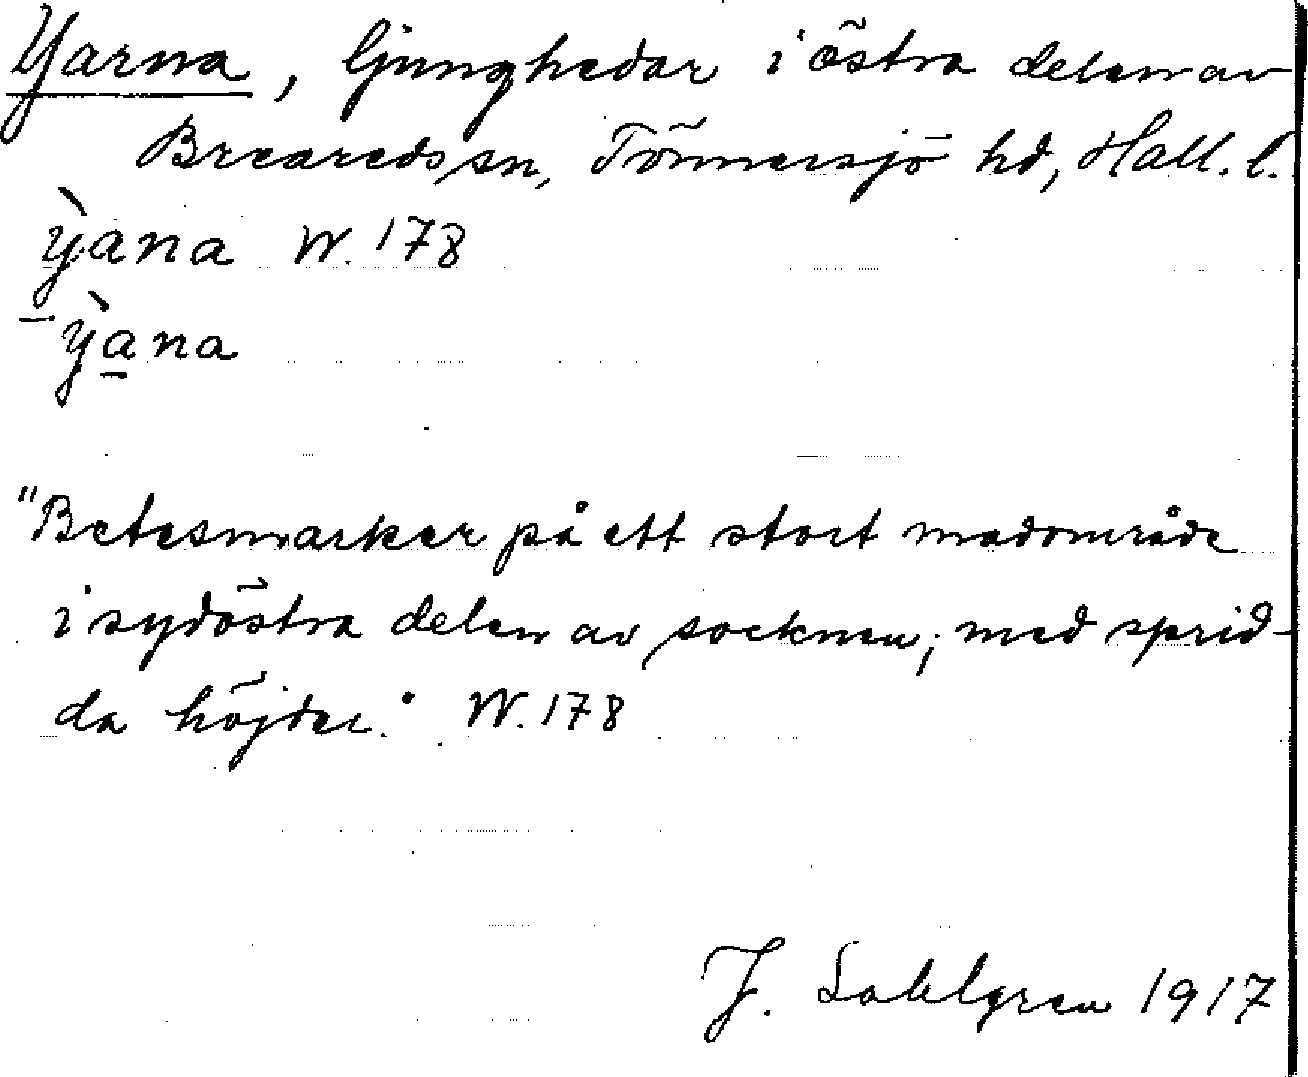 Yarna, ljunghedar i östra delen av
Breareds sn, Tönnersjö hd, Hall. l.
ỳana W. 178
ỳana
"Betesmarker på ett stort madområde
i sydöstra delen av socknen; med sprid-
da höjder." W. 178
J. Sahlgren 1917